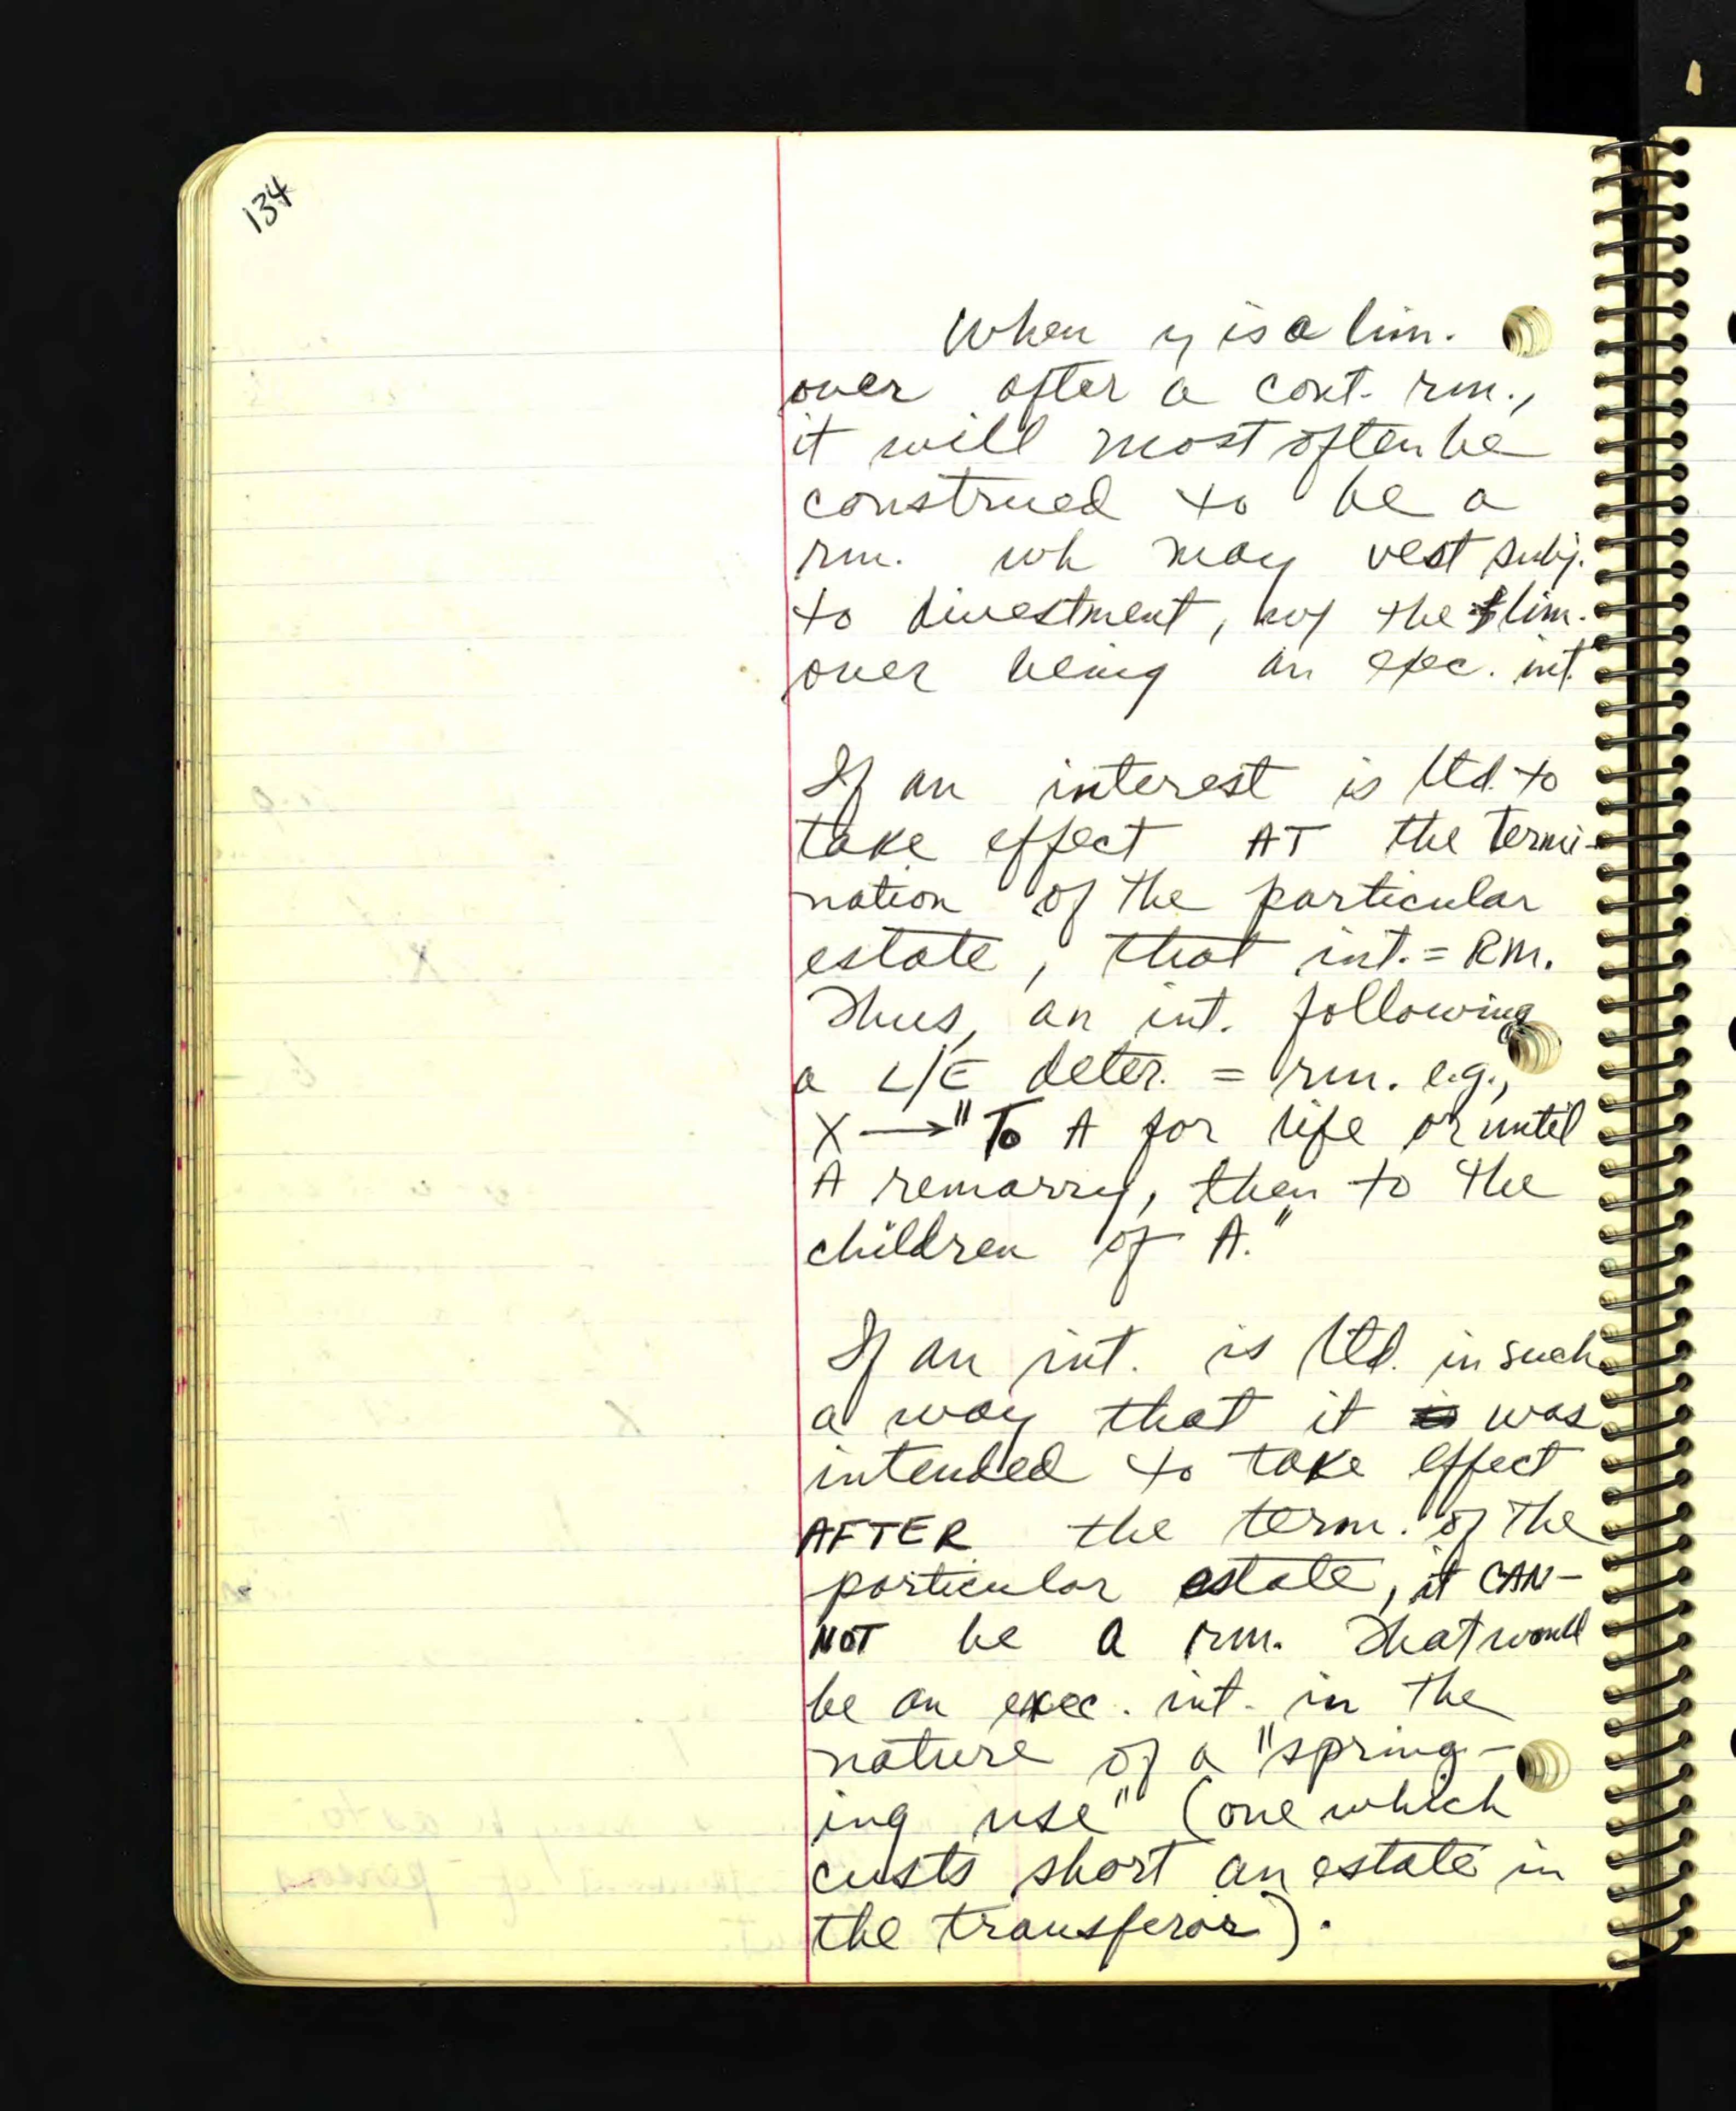 134
When y is a lim.
over after a cont. rm.,
it will most often be
construed to be a
rm. wh may vest subj.
to divestment, the lim.
over being an exec. int.
If an interest is ltd. to
take effect AT the termi-
nation of the particular
estate, that int. = RM.
Thus, an int. following
a L/E deter. = rm. e.g.,
X → "To A for life or until
A remarry, then to the
children of A."
If an int. is ltd. in such
a way that it was
intended to take effect
AFTER the term. of the
particular estate, it CAN-
NOT be a rm. That would
be an exec. int. in the
nature of a "spring-
ing use" (one which
custs short an estate in
the transferor).